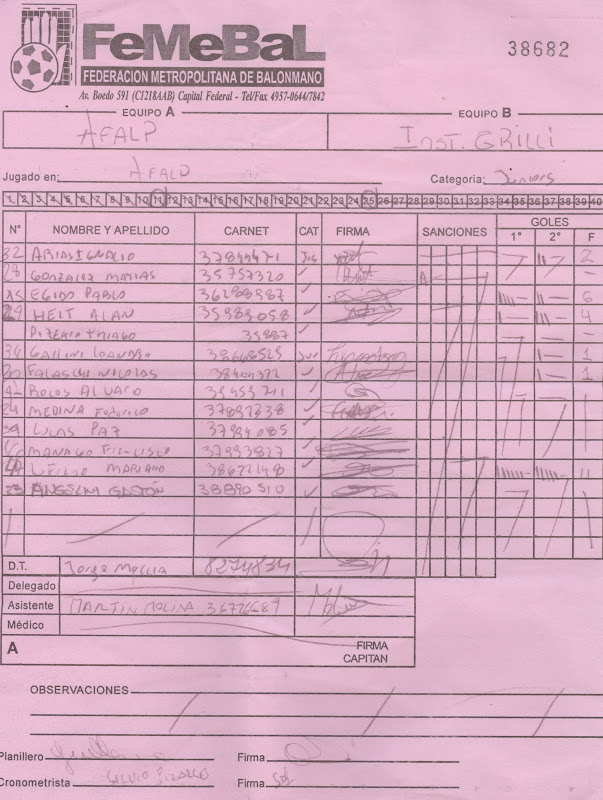 FeMeBaL
38682
FEDERACIÓN METROPOLITANA DE BALONMANO
Av. Boedo 591 (C1218AAB) Capital Federal - Tel/Fax 4957-0644/7842
EQUIPO A EQUIPO B
AFALP INST. GRILLI
Jugado en: AFALP Categoria: Juniors
1 2 3 4 5 6 7 8 9 10 11 12 13 14 15 16 17 18 19 20 21 22 23 24 25 26 27 28 29 30 31 32 33 34 35 36 37 38 39 40
Nº NOMBRE Y APELLIDO CARNET CAT FIRMA SANCIONES GOLES
1º 2º F
32 ARIAS IGNACIO 2
GONZALEZ MATIAS 35757320 -
15 EGIDO PABLO 36288987 6
29 HEIT ALAN 35983058 4
THIAGO 35887 -
34 GALLINI LEANDRO 38648525 1
30 FALASCHI NICOLAS 1
ROCOS ALVARO
24 MEDINA Federico 37892338
39 LUCAS PAZ 37994085
37993827
MARIANO 38622148 11
23 ANGELINI GASTÓN 38890510
D.T. Jorge 8274834
Delegado
Asistente MARTIN MOLINA 35726689
Médico
A FIRMA
CAPITAN
OBSERVACIONES
Planillero Firma
Cronometrista SILVIO Firma